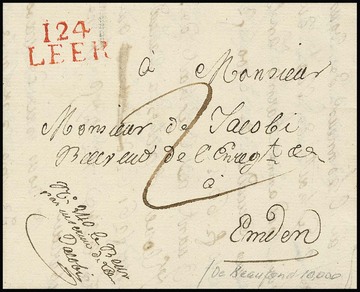 124
LEER
à Monsieur
Monsieur de Jacobi
Receveur de l'Enregt. &c
à
2
Emden
No. 240 le
Jacobi
De Beaufond 10,000